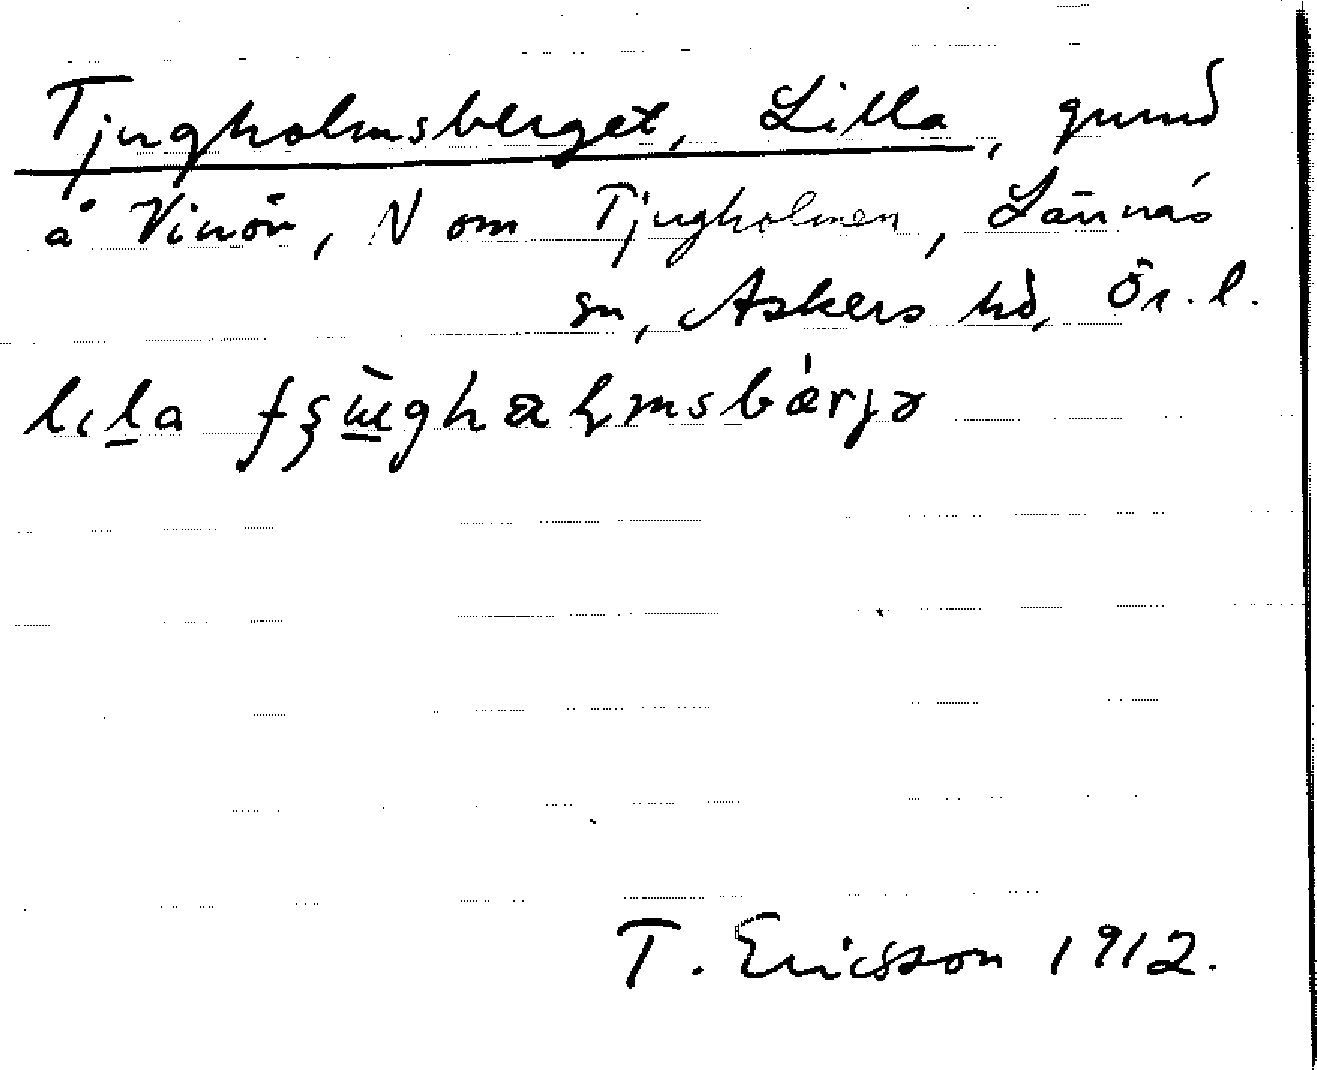 Tjugholmsberget, Lilla, grund
å Vinön, N om Tjugholmen, Lännäs
sn, Askers hd, Ör. l.
lıḷa
T. Ericsson 1912.